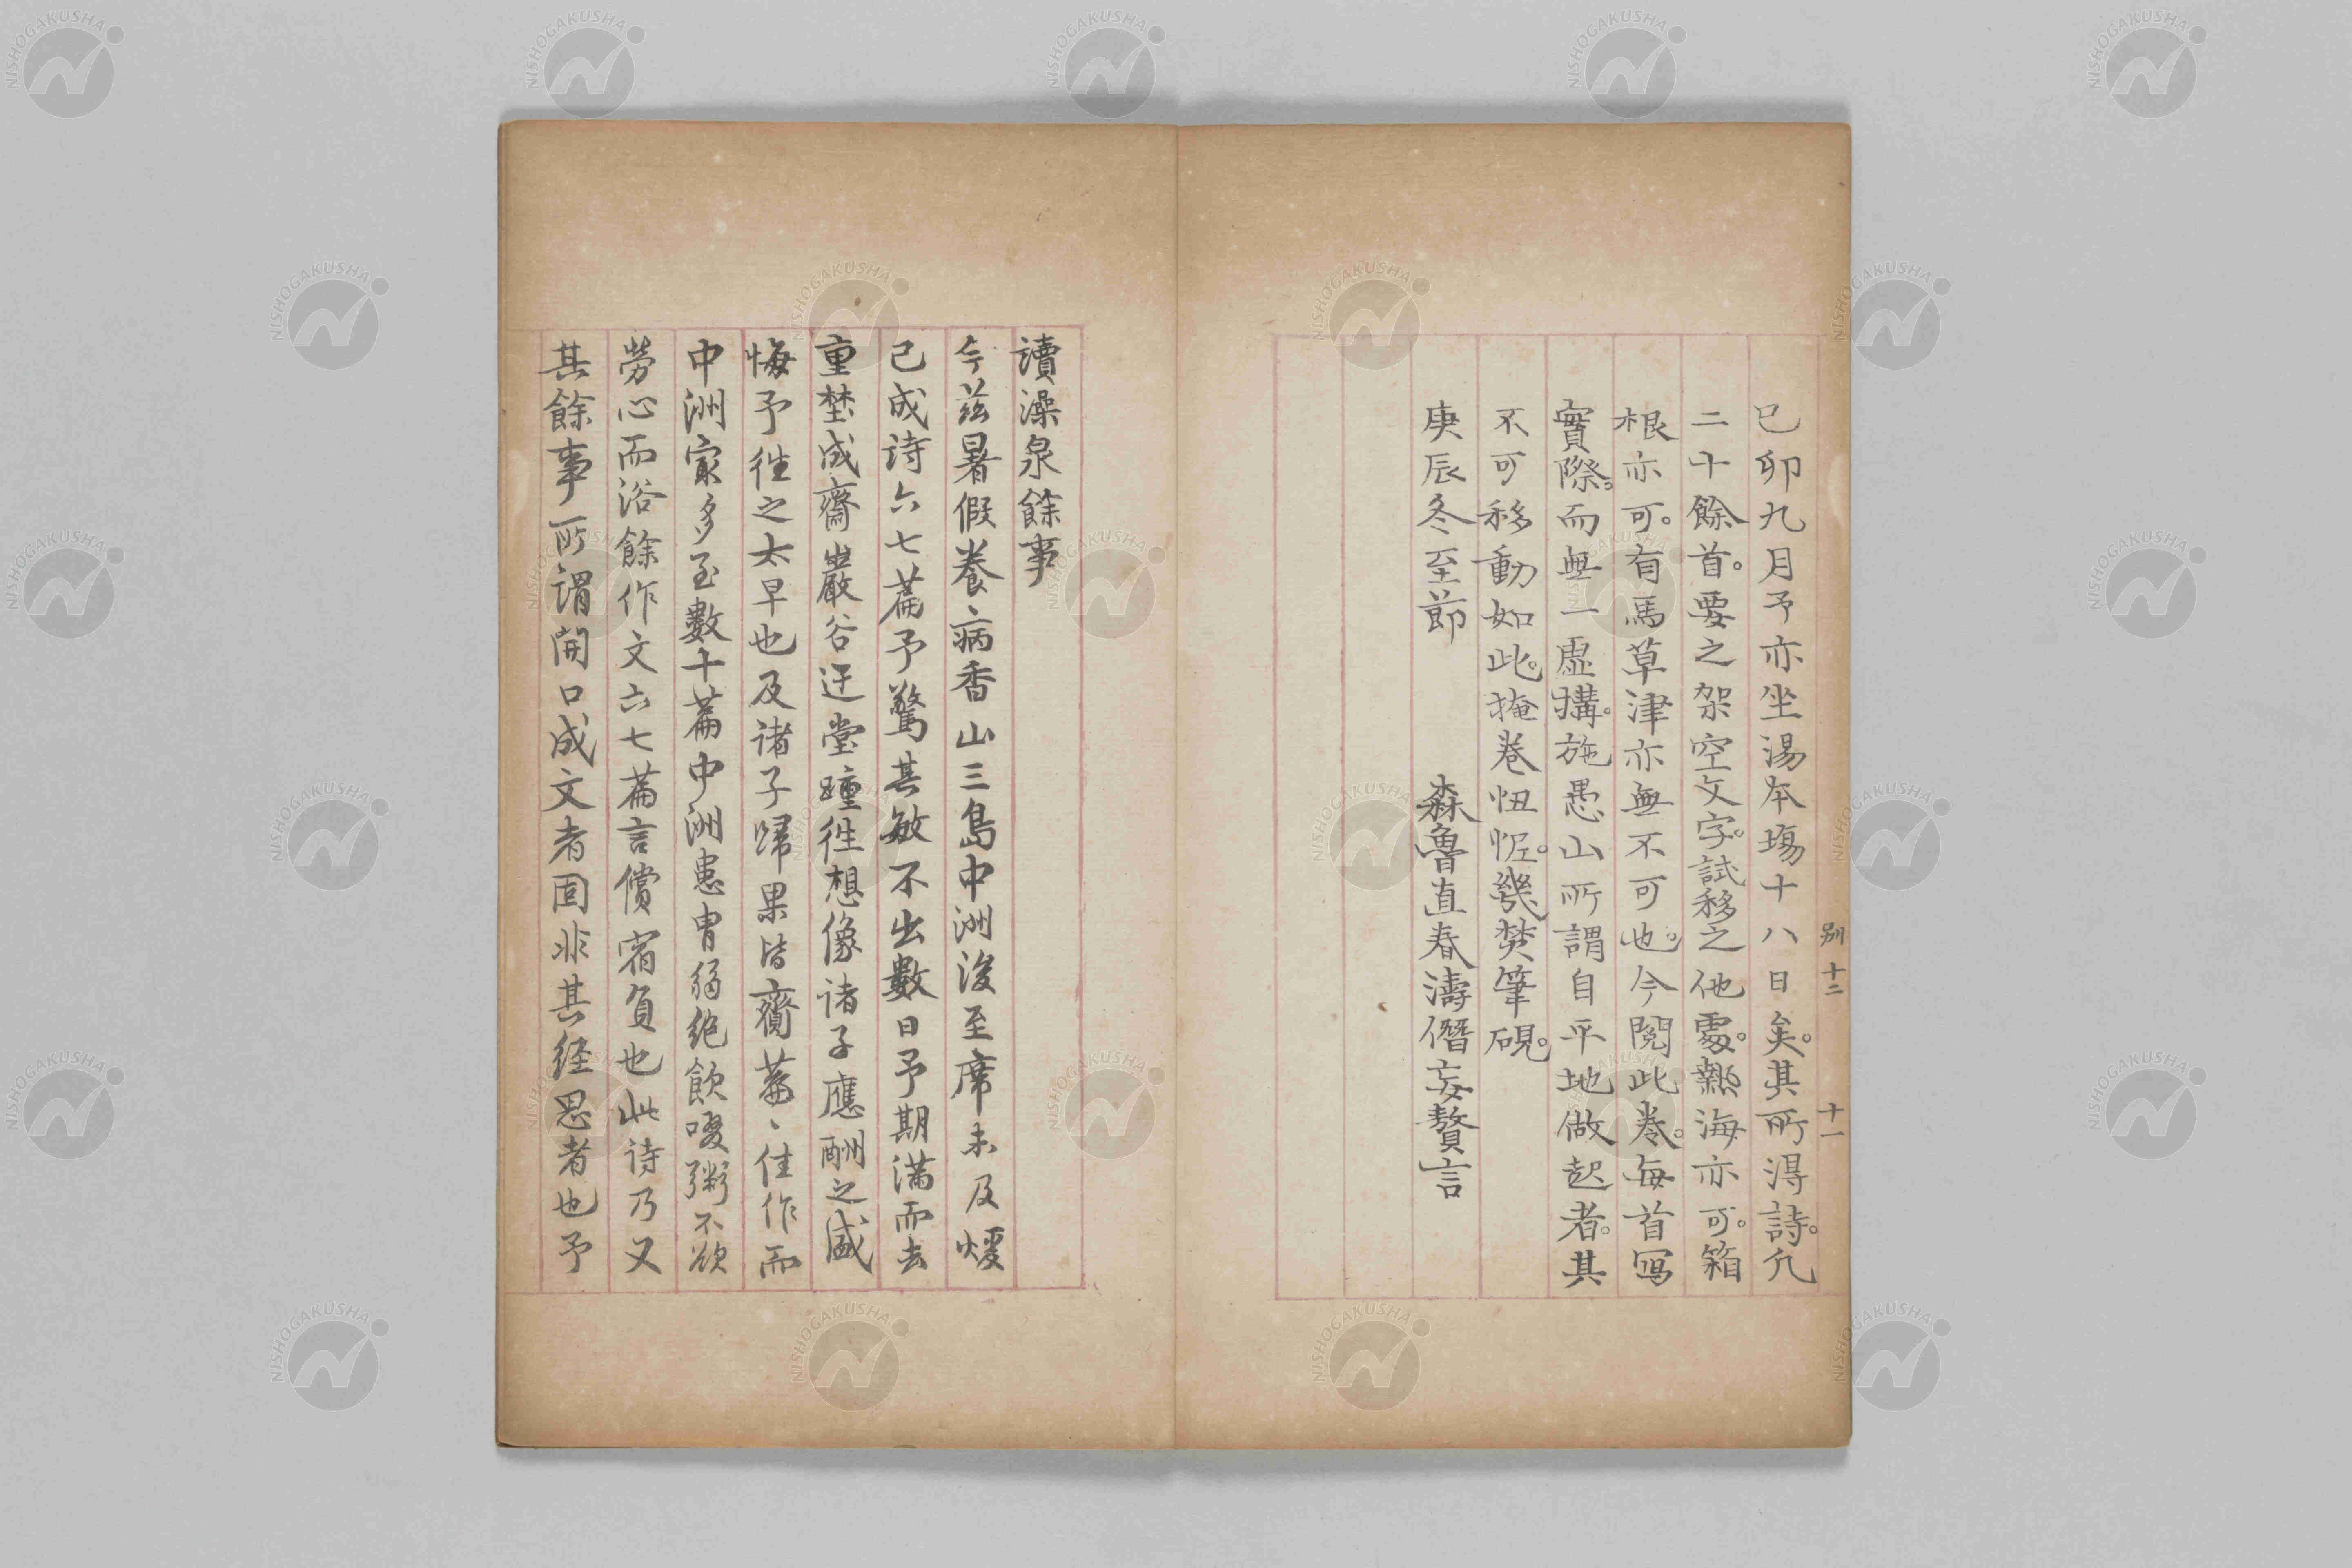 己卯九月予亦坐湯夲塲十八日矣。其所淂詩。凢
二十餘首。要之架空文字。試移之他處。熱海亦可。箱
根亦可。有馬草津亦無不可也。今閲此巻。毎首寫
實際。而無一虚搆。施愚山所謂自平地做起者。其
不可移動如此。掩巻忸怩。幾焚筆硯。
庚辰冬至節 森魯直春濤僭妄贅言
別十二 十一
讀澡泉餘事
今茲暑假養病香山三島中洲後至席未及煖
已成詩六七篇予驚其敏不出數日予期滿而去
重埜成齋巖谷迂堂踵徃想像諸子應酬之盛
悔予徃之太早也及諸子歸果皆齎篇、佳作而
中洲家多至數十篇中洲患胃弱絶飲啜粥不欲
勞心而浴餘作文六七篇言償宿負也此詩乃又
其餘事所謂開口成文者固非其経思者也予